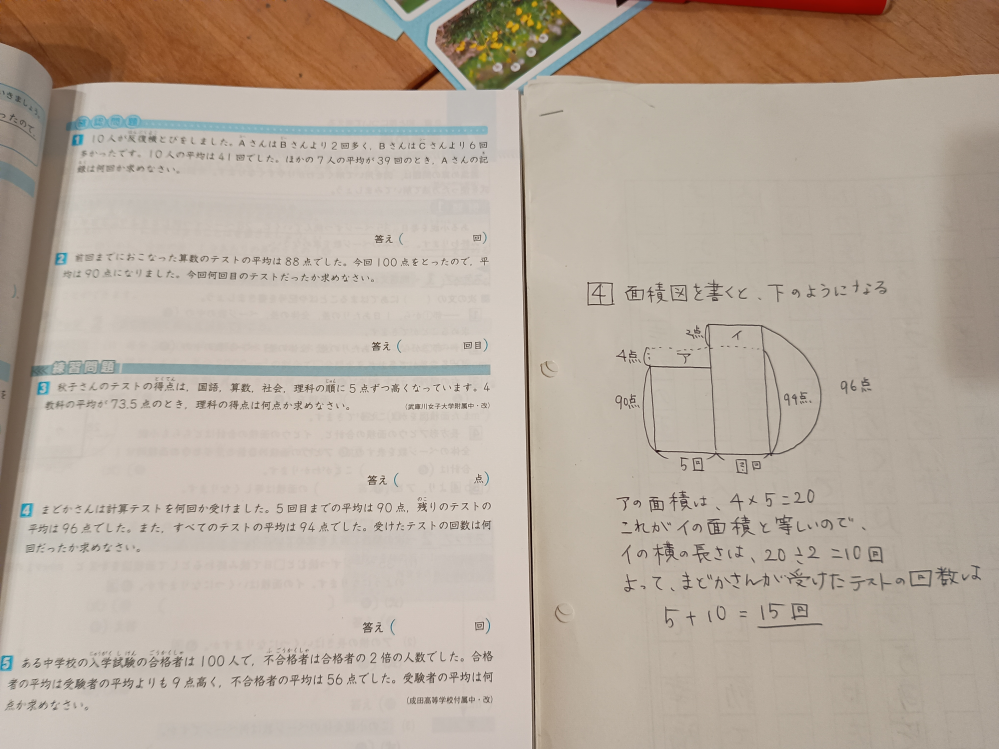 いきましょう。
ったので
確認問題
1 10人が反復横とびをしました。AさんはBさんより2回多く、BさんはCさんより6回
多かったです。10人の平均は41回でした。ほかの7人の平均が39回のとき、Aさんの記
録は何回か求めなさい。
答え( 回)
2 前回までにおこなった算数のテストの平均は88点でした。今回100点をとったので、平
均は90点になりました。今回何回目のテストだったか求めなさい。
答え( 回目)
練習問題
3 秋子さんのテストの得点は、国語、算数、社会、理科の順に5点ずつ高くなっています。4
教科の平均が73.5点のとき、理科の得点は何点か求めなさい。 (武庫川女子大学附属中・改)
答え( 点)
4 まどかさんは計算テストを何回か受けました。5回目までの平均は90点、残りのテストの
平均は96点でした。また、すべてのテストの平均は94点でした。受けたテストの回数は何
回だったか求めなさい。
答え( 回)
5 ある中学校の入学試験の合格者は100人で、不合格者は合格者の2倍の人数でした。合格
者の平均は受験者の平均よりも9点高く、不合格者の平均は56点でした。受験者の平均は何
点か求めなさい。 (成田高等学校付属中・改)
4 面積図を書くと、下のようになる
2点
イ
4点
ア
90点
94点
96点
5回
回
アの面積は、4×5=20
これがイの面積と等しいので、
イの横の長さは、20÷2=10回
よって、まどかさんが受けたテストの回数は
5+10=15回